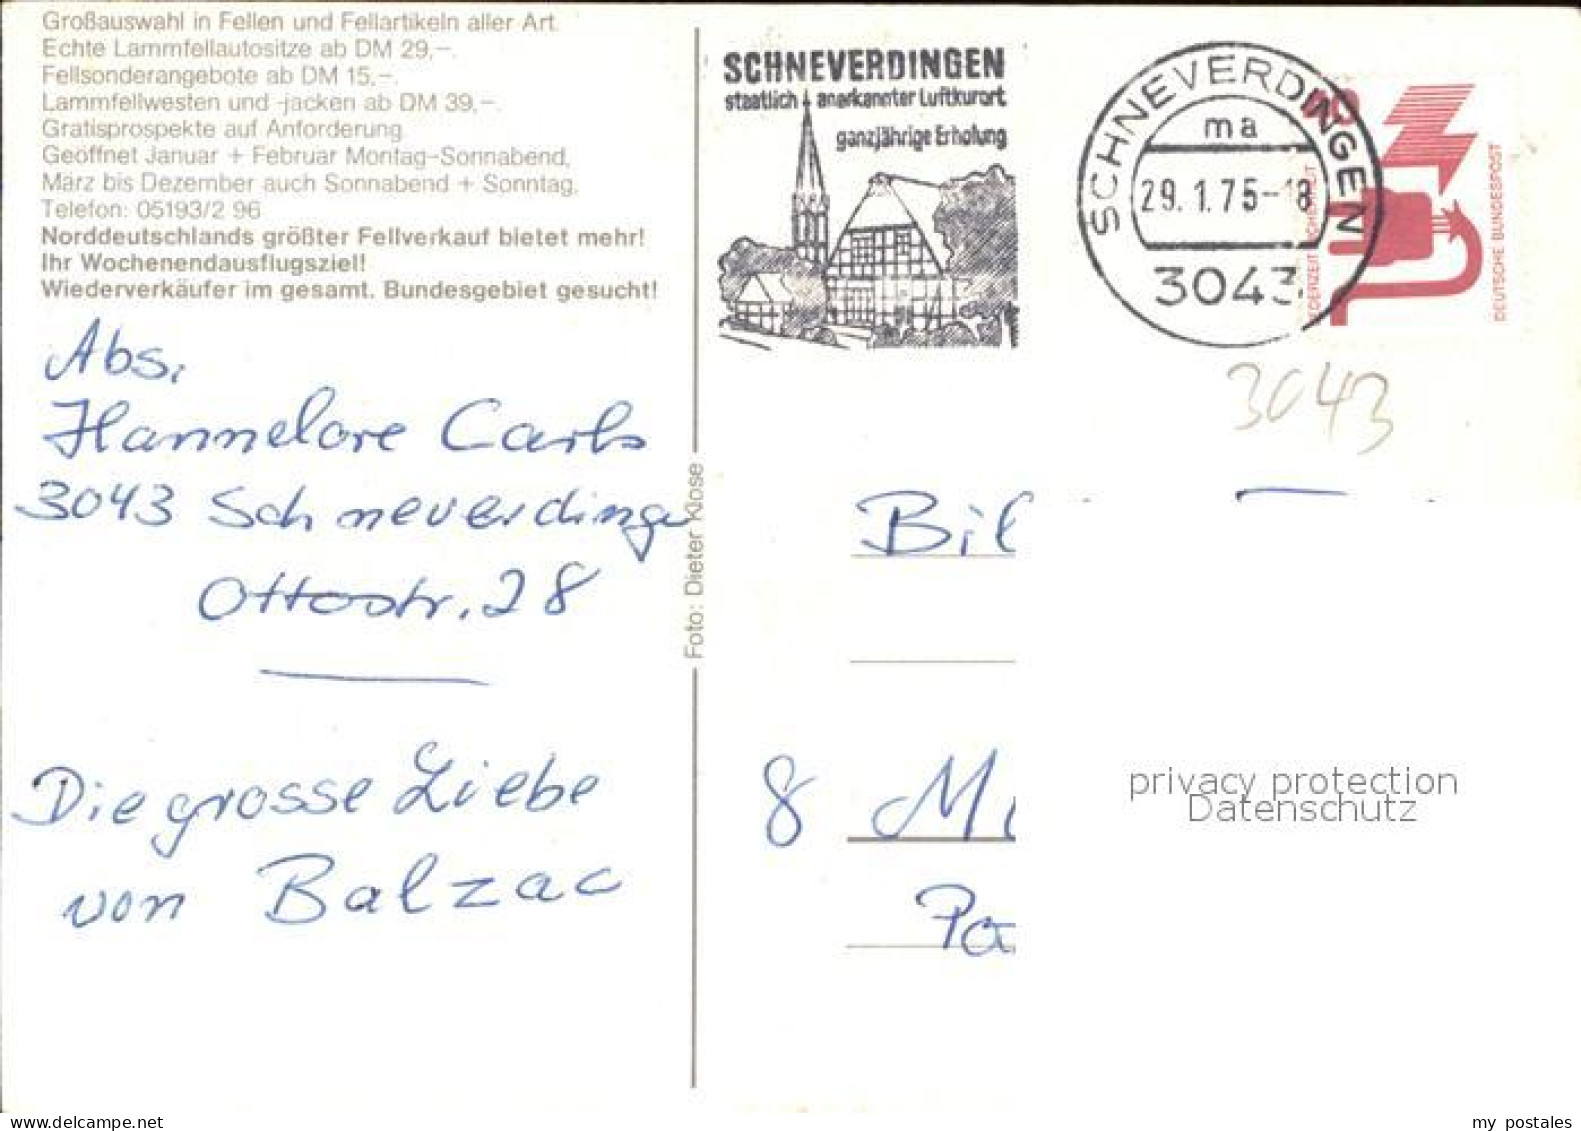 Großauswahl in Fellen und Fellartikeln aller Art.
Echte Lammfellautositze ab DM 29,–.
Fellsonderangebote ab DM 15,–.
Lammfellwesten und -jacken ab DM 39,–.
Gratisprospekte auf Anforderung.
Geöffnet Januar + Februar Montag–Sonnabend,
März bis Dezember auch Sonnabend + Sonntag,
Telefon: 05193/2 96
Norddeutschlands größter Fellverkauf bietet mehr!
Ihr Wochenendausflugsziel!
Wiederverkäufer im gesamt. Bundesgebiet gesucht!
Abs.
Hannelore Carls
3043 Schneverdingen
Ottostr. 28
Die grosse Liebe
von Balzac
Foto: Dieter Klose
SCHNEVERDINGEN
staatlich anerkannter Luftkurort
ganzjährige Erholung
SCHNEVERDINGEN
ma
29.1.75-18
3043
DEUTSCHE BUNDESPOST
3043
Bil
8 M
Pa
privacy protection
Datenschutz
delcampe.net
my postales